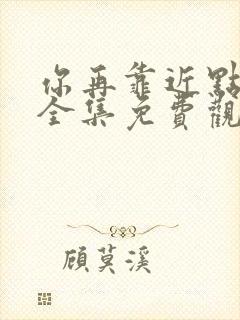 你再靠近點
全集免費觀
顧莫溪